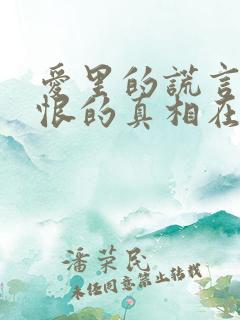 爱里的谎言
恨的真相在
潘荣民
未经同意禁止转载